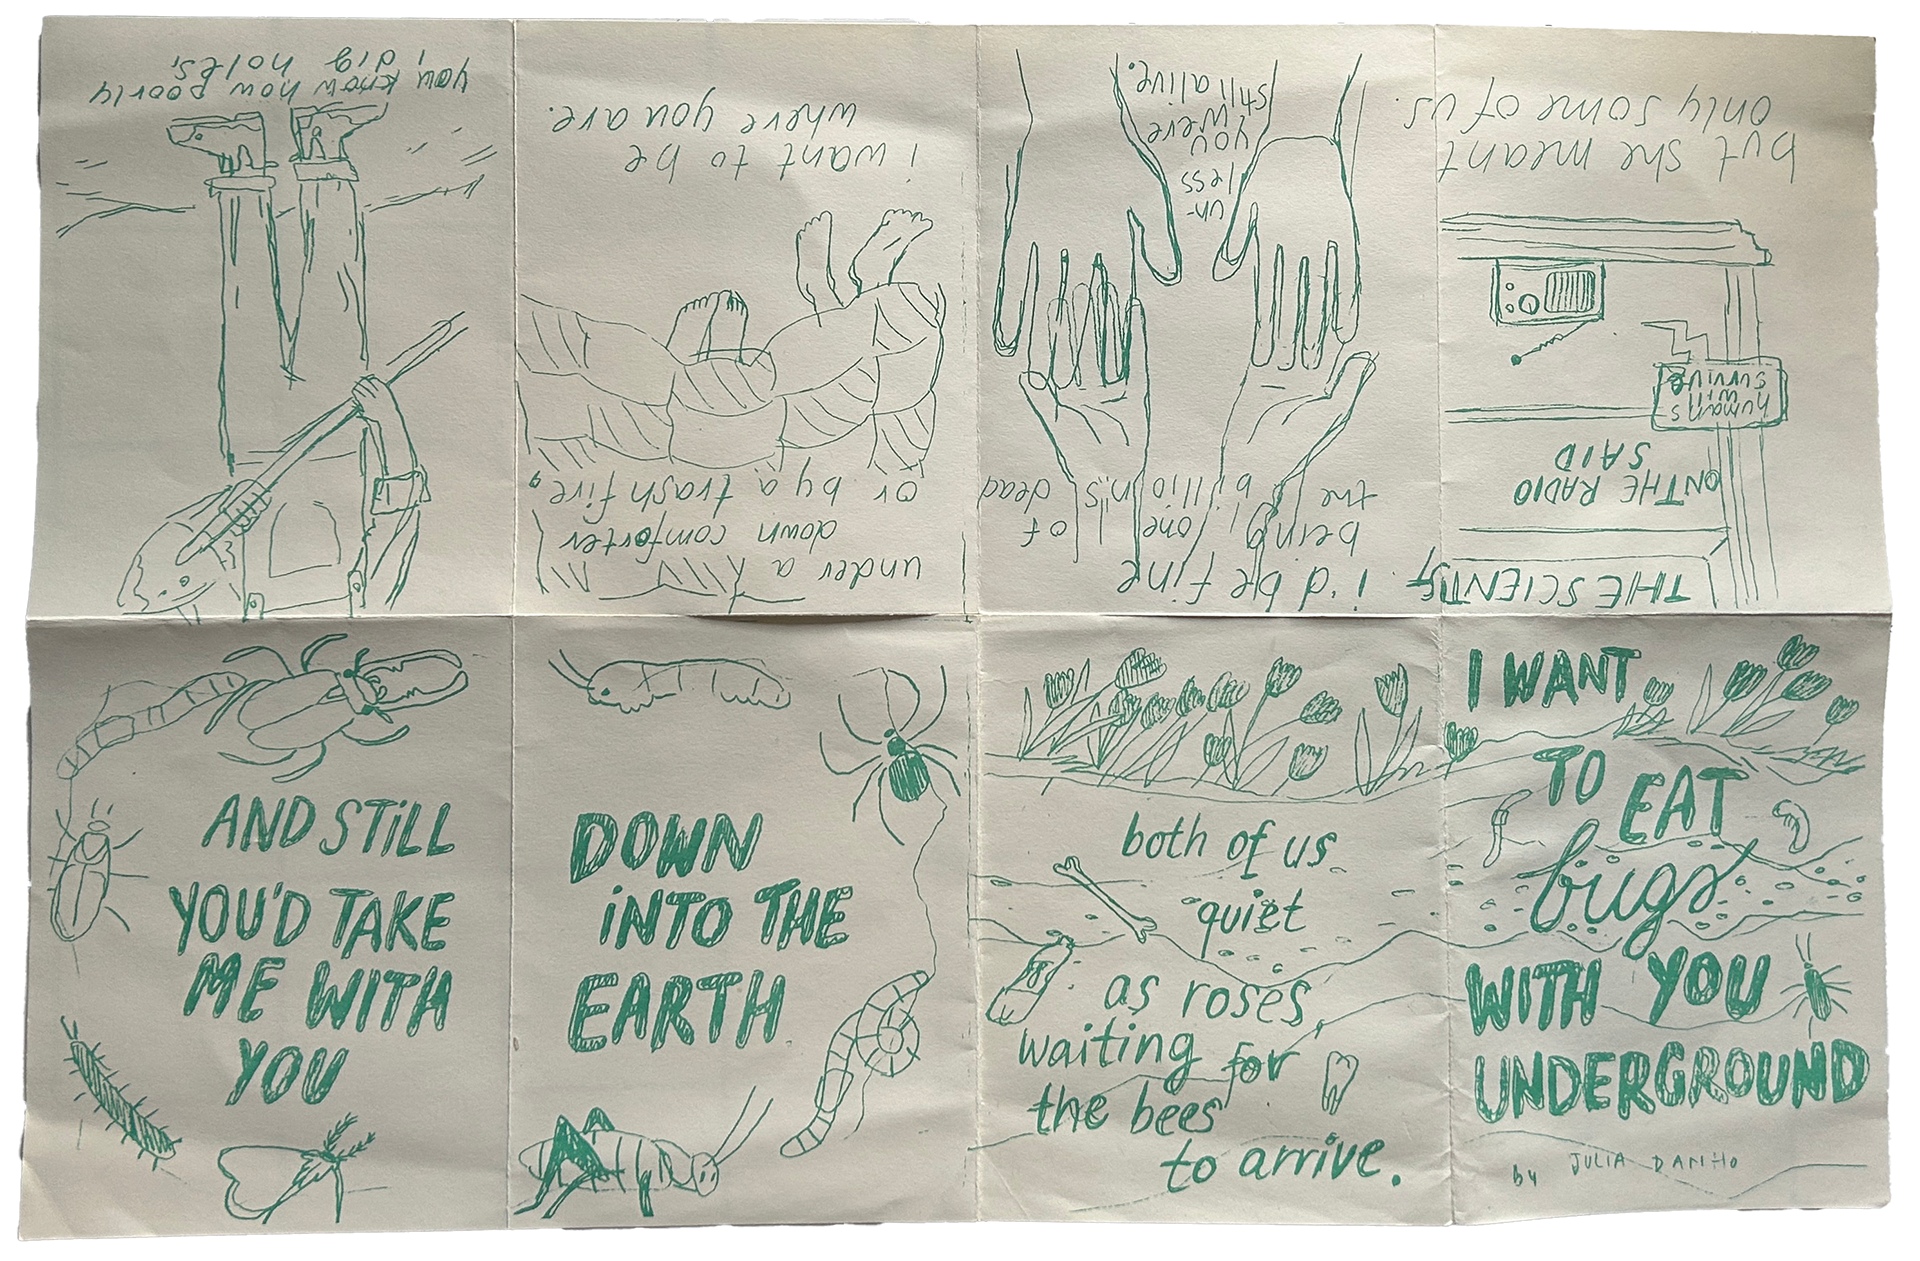 I WANT
TO EAT
bugs
WITH YOU
UNDERGROUND
by JULIA DANHO
THE SCIENTIST
ON THE RADIO
SAID
humans
will
survive
but she meant
only some of us.
i'd be fine
being one of
the billions dead
un-
less
you
were
still alive.
under a
down comforter
or by a trash fire,
i want to be
where you are.
you know how poorly
i dig holes,
AND STILL
YOU'D TAKE
ME WITH
YOU
DOWN
INTO THE
EARTH
both of us
quiet
as roses
waiting for
the bees
to arrive.